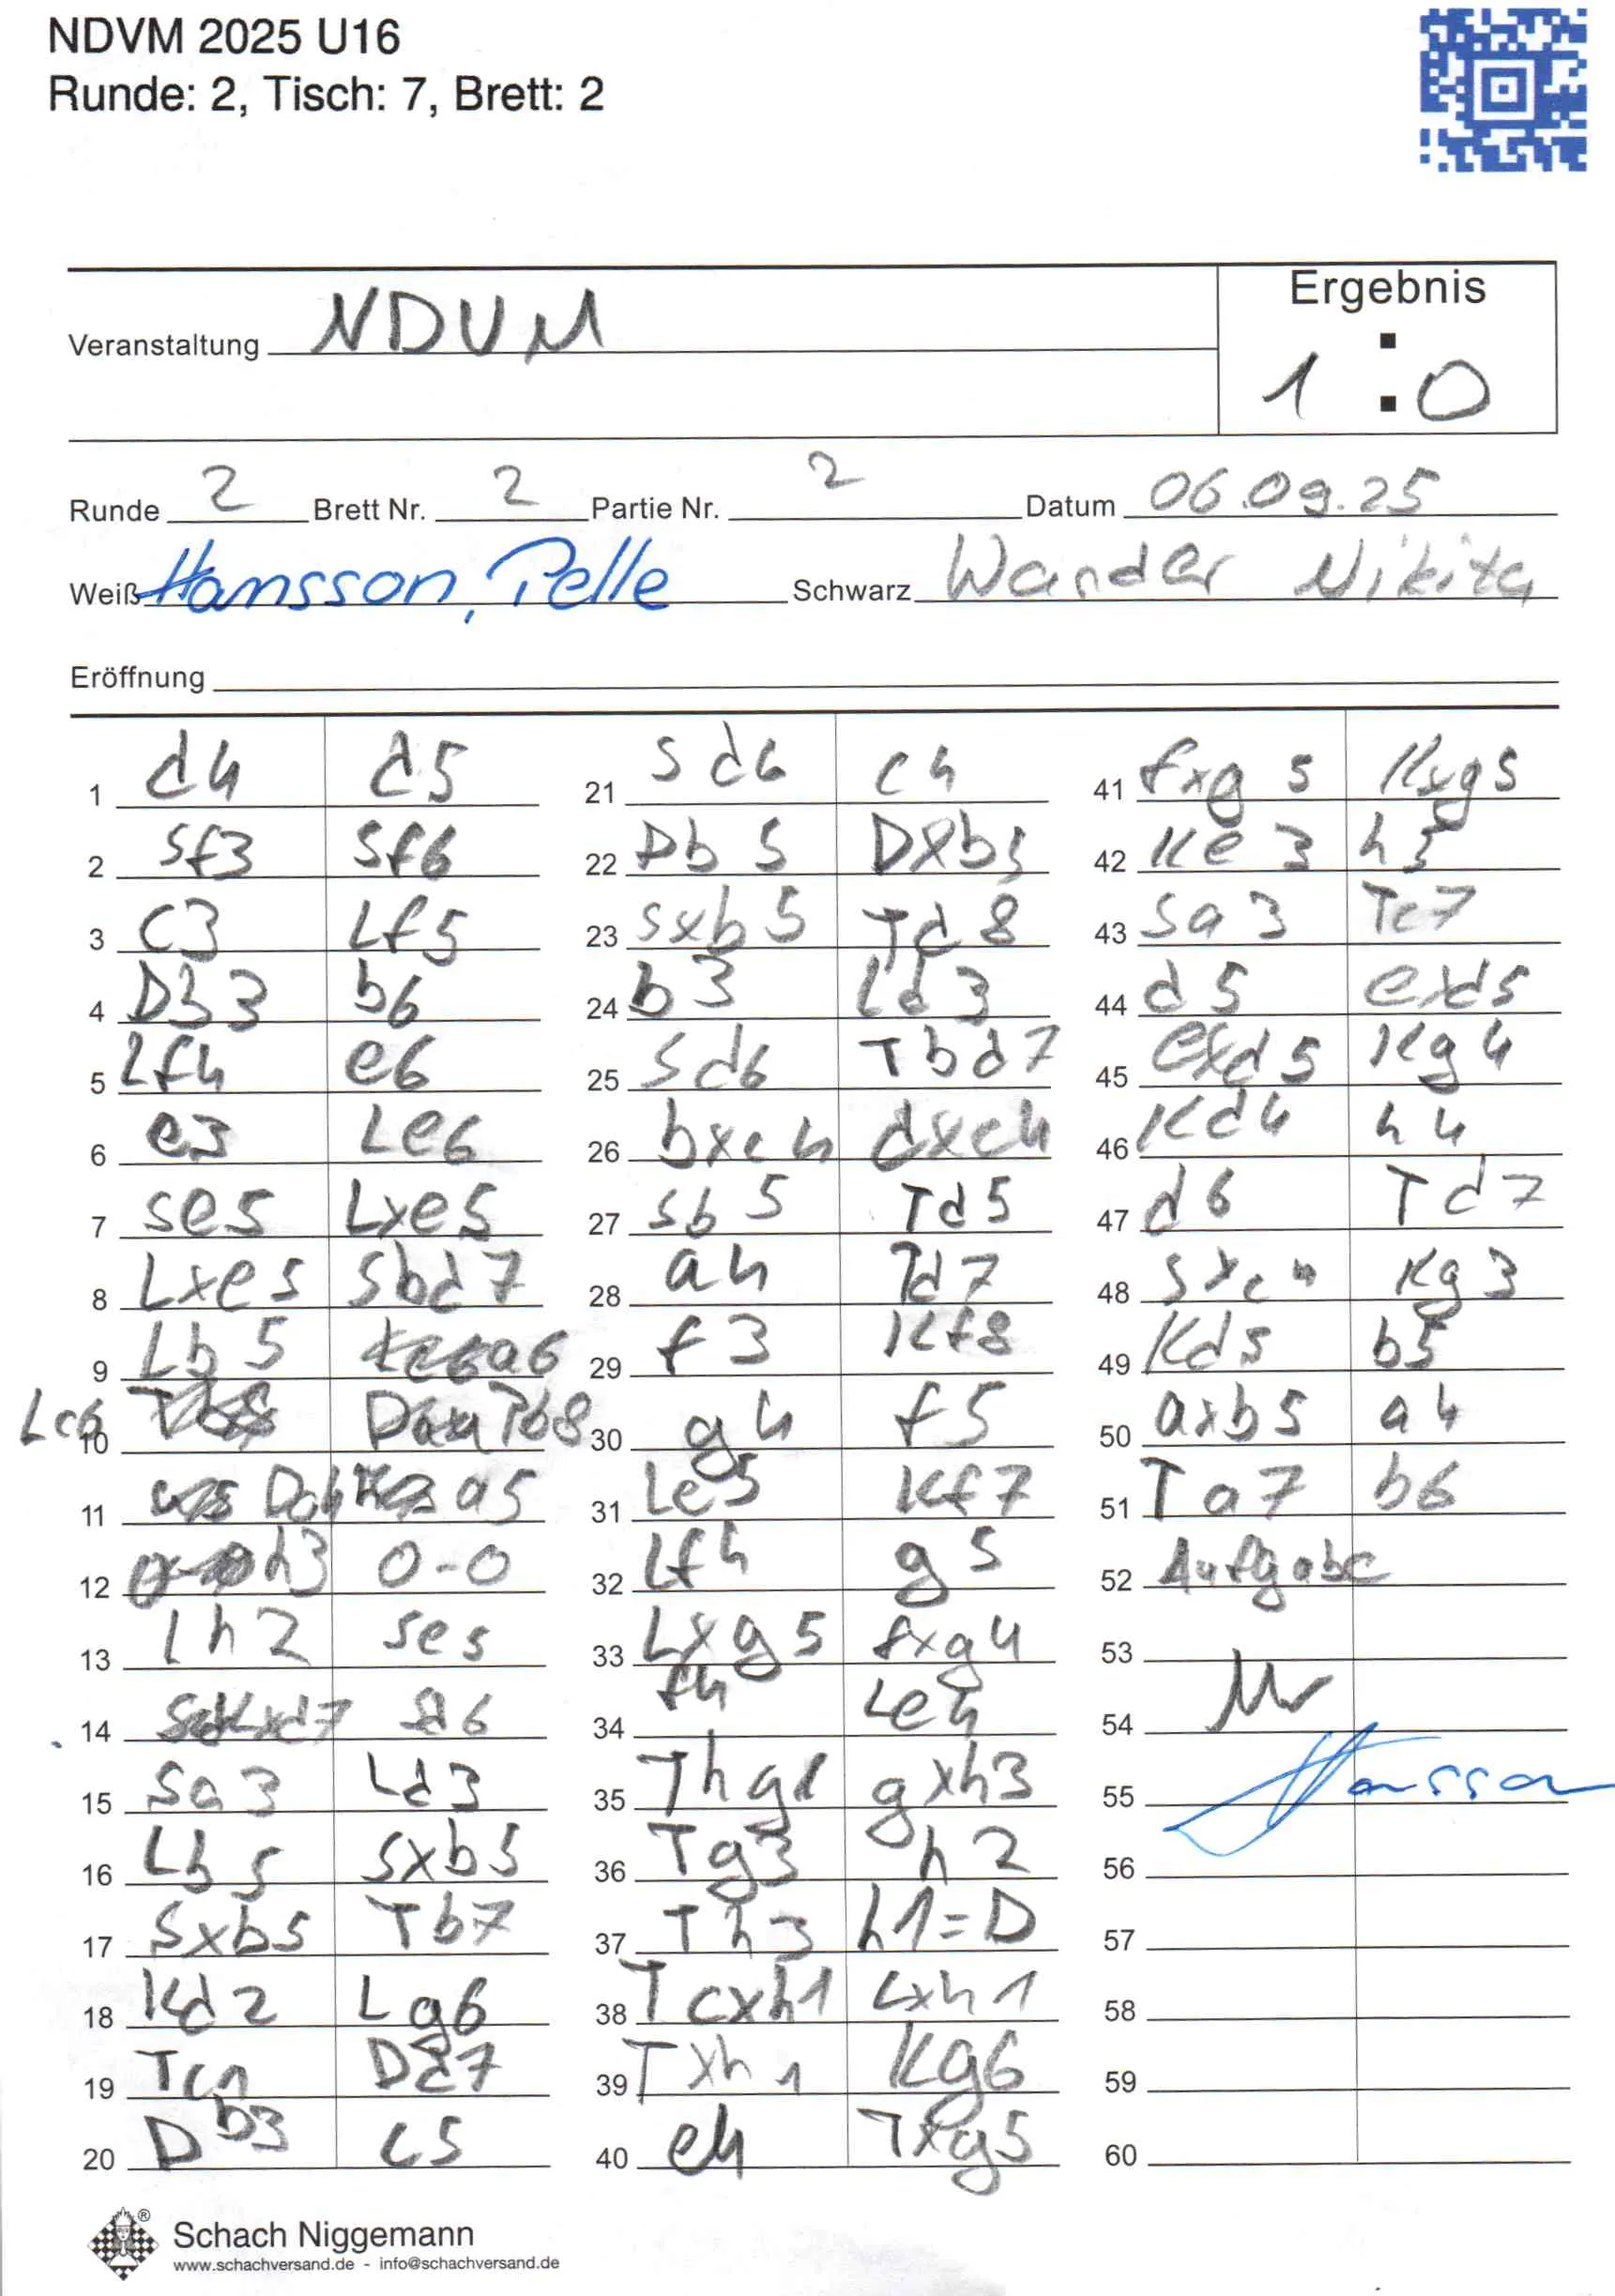 NDVM 2025 U16
Runde: 2, Tisch: 7, Brett: 2
Ergebnis
Veranstaltung NDVM
1 : 0
Runde 2 Brett Nr. 2 Partie Nr. 2 Datum 06.09.25
Weiß Hansson, Pelle Schwarz Wander Nikita
Eröffnung
1 d4 d5
2 Sf3 Sf6
3 C3 Lf5
4 Db3 b6
5 Lf4 e6
6 e3 Le6
7 Se5 Lxe5
8 Lxe5 Sbd7
9 Lb5 a6
10 Lc6 Tb8
11 Da4 a5
12 h3 0-0
13 Lh2 Se5
14 Lxd7 Sd6
15 Sa3 Ld3
16 Lb5 Sxb5
17 Sxb5 Tb7
18 Kd2 Lg6
19 Tc1 Dd7
20 Db3 c5
21 Sd6 c4
22 Db5 Dxb5
23 Sxb5 Td8
24 b3 Ld3
25 Sd6 Tbd7
26 bxc4 dxc4
27 Sb5 Td5
28 a4 Td7
29 f3 Kf8
30 g4 f5
31 Le5 Kf7
32 Lf4 g5
33 Lxg5 fxg4
34 f4 Le4
35 Thg1 gxh3
36 Tg3 h2
37 Th3 h1=D
38 Tcxh1 Lxh1
39 Txh1 Kg6
40 e4 Txg5
41 fxg5 Kxg5
42 Ke3 h5
43 Sa3 Tc7
44 d5 exd5
45 exd5 Kg4
46 Kd4 h4
47 d6 Td7
48 Sxc4 Kg3
49 Kd5 b5
50 axb5 a4
51 Ta7 b6
52 Aufgabe
53
54
55 Hansson
56
57
58
59
60
Schach Niggemann
www.schachversand.de - info@schachversand.de